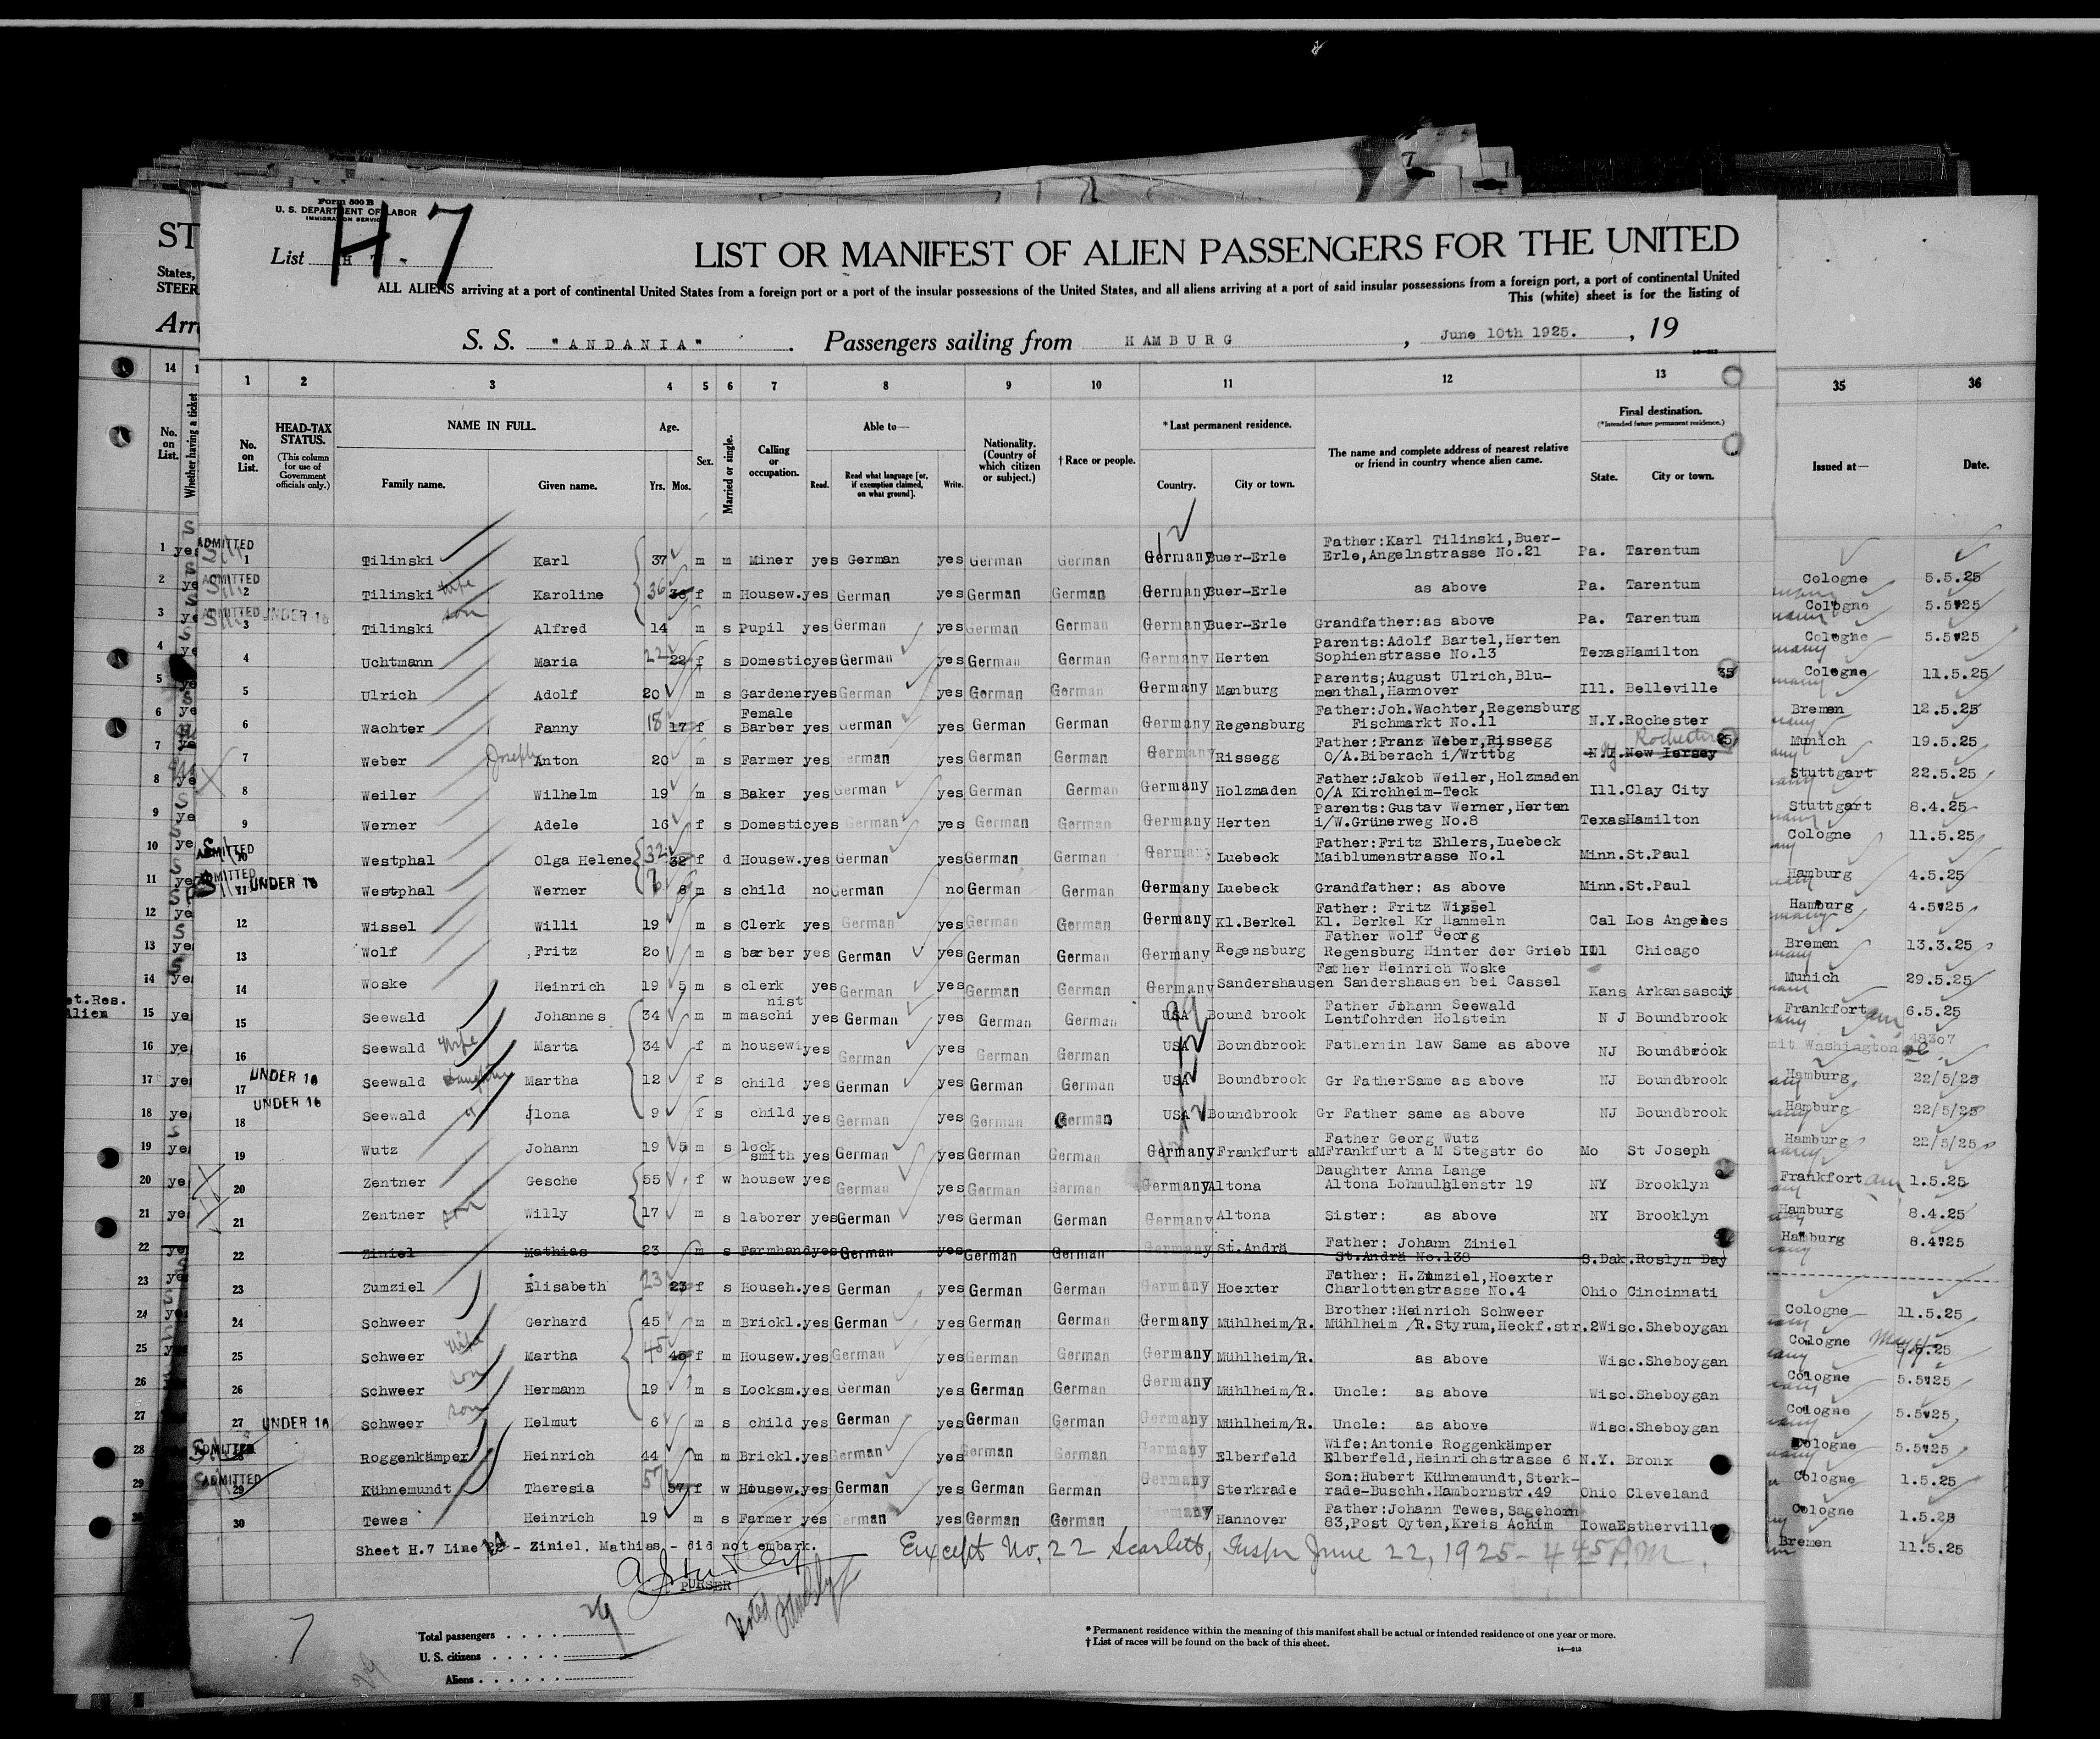 Form 500 B
U. S. DEPARTMENT OF LABOR
IMMIGRATION SERVICE
List H 7
H 7 -
LIST OR MANIFEST OF ALIEN PASSENGERS FOR THE UNITED
ALL ALIENS arriving at a port of continental United States from a foreign port or a port of the insular possessions of the United States, and all aliens arriving at a port of said insular possessions from a foreign port, a port of continental United
This (white) sheet is for the listing of
S. S. "ANDANIA" . Passengers sailing from HAMBURG , June 10th 1925. , 19
ST
States,
STEER
Arri
14 1 2 3 4 5 6 7 8 9 10 11 12 13 35 36
No. on List. Whether having a ticket
No. on List. HEAD-TAX STATUS. (This column for use of Government officials only.) NAME IN FULL. Family name. Given name. Age. Yrs. Mos. Sex. Married or single. Calling or occupation. Able to— Read. Read what language [or, if exemption claimed, on what ground]. Write. Nationality. (Country of which citizen or subject.) † Race or people. * Last permanent residence. Country. City or town. The name and complete address of nearest relative or friend in country whence alien came. Final destination. (*Intended future permanent residence.) State. City or town. Issued at— Date.
ADMITTED 1 Tilinski Karl 37 m m Miner yes German yes German German Germany Buer-Erle Father:Karl Tilinski,Buer-Erle,Angelnstrasse No.21 Pa. Tarentum
ADMITTED 2 Tilinski wife Karoline 36 36 f m Housew. yes German yes German German Germany Buer-Erle as above Pa. Tarentum Cologne 5.5.25
ADMITTED UNDER 16 3 Tilinski son Alfred 14 m s Pupil yes German yes German German Germany Buer-Erle Grandfather:as above Pa. Tarentum Cologne 5.5.25
4 Uchtmann Maria 22 22 f s Domestic yes German yes German German Germany Herten Parents:Adolf Bartel,Herten Sophienstrasse No.13 Texas Hamilton Cologne 5.5.25
5 Ulrich Adolf 20 m s Gardener yes German yes German German Germany Manburg Parents;August Ulrich,Blu-menthal,Hannover Ill. Belleville Cologne 11.5.25
6 Wachter Fanny 18 17 f s Female Barber yes German yes German German Germany Regensburg Father:Joh.Wachter,Regensburg Fischmarkt No.11 N.Y. Rochester Bremen 12.5.25
7 Weber Joseph Anton 20 m s Farmer yes German yes German German Germany Rissegg Father:Franz Weber,Rissegg O/A.Biberach i/Wrttbg N.J. New Jersey Rochester Munich 19.5.25
8 Weiler Wilhelm 19 m s Baker yes German yes German German Germany Holzmaden Father:Jakob Weiler,Holzmaden O/A Kirchheim-Teck Ill. Clay City Stuttgart 22.5.25
9 Werner Adele 16 f s Domestic yes German yes German German Germany Herten Parents:Gustav Werner,Herten i/W.Grünerweg No.8 Texas Hamilton Stuttgart 8.4.25
ADMITTED 10 Westphal Olga Helene 32 32 f d Housew. yes German yes German German Germany Luebeck Father:Fritz Ehlers,Luebeck Maiblumenstrasse No.1 Minn. St.Paul Cologne 11.5.25
ADMITTED 11 UNDER 16 Westphal Werner 6 m s child no German no German German Germany Luebeck Grandfather: as above Minn. St.Paul Hamburg 4.5.25
12 Wissel Willi 19 m s Clerk yes German yes German German Germany Kl.Berkel Father: Fritz Wissel Kl. Berkel Kr Hammeln Cal Los Angeles Hamburg 4.5.25
13 Wolf Fritz 20 m s barber yes German yes German German Germany Regensburg Father Wolf Georg Regensburg Hinter der Grieb Ill Chicago Bremen 13.3.25
14 Woske Heinrich 19 5 m s clerk yes German yes German German Germany Sandershausen Father Heinrich Woske Sandershausen bei Cassel Kans Arkansascity Munich 29.5.25
et.Res. Alien 15 Seewald Johannes 34 m m nist maschi yes German yes German German USA Bound brook Father Johann Seewald Lentfohrden Holstein N J Boundbrook Frankfort am 6.5.25
16 Seewald wife Marta 34 f m housewi yes German yes German German USA Boundbrook Father in law Same as above NJ Boundbrook mit Washington 48307
17 UNDER 16 Seewald daughter Martha 12 f s child yes German yes German German USA Boundbrook Gr Father Same as above NJ Boundbrook Hamburg 22/5/25
UNDER 16 18 Seewald Ilona 9 f s child yes German yes German German USA Boundbrook Gr Father same as above NJ Boundbrook Hamburg 22/5/25
19 Wutz Johann 19 5 m s lock smith yes German yes German German Germany Frankfurt aM Father Georg Wutz Frankfurt a M Stegstr 60 Mo St Joseph Hamburg 22/5/25
20 Zentner Gesche 55 f w housew yes German yes German German Germany Altona Daughter Anna Lange Altona Lohmulhlenstr 19 NY Brooklyn Frankfort am 1.5.25
21 Zentner son Willy 17 m s laborer yes German yes German German Germany Altona Sister: as above NY Brooklyn Hamburg 8.4.25
22 Ziniel Mathias 23 m s Farmhand yes German yes German German Germany St.Andrä Father: Johann Ziniel St.Andrä No.138 S.Dak. Roslyn Day Hamburg 8.4.25
23 Zumziel Elisabeth 23 23 f s Househ. yes German yes German German Germany Hoexter Father: H.Zumziel,Hoexter Charlottenstrasse No.4 Ohio Cincinnati
24 Schweer Gerhard 45 m m Brickl. yes German yes German German Germany Mühlheim/R. Brother:Heinrich Schweer Mühlheim /R.Styrum,Heckf.str.2 Wisc. Sheboygan Cologne 11.5.25
25 Schweer wife Martha 45 45 f m Housew. yes German yes German German Germany Mühlheim/R. as above Wisc. Sheboygan Cologne May 5.5.25
26 Schweer son Hermann 19 m s Locksm. yes German yes German German Germany Mühlheim/R. Uncle: as above Wisc. Sheboygan Cologne 5.5.25
27 UNDER 16 Schweer son Helmut 6 m s child yes German yes German German Germany Mühlheim/R. Uncle: as above Wisc. Sheboygan Cologne 5.5.25
ADMITTED 28 Roggenkämper Heinrich 44 m m Brickl. yes German yes German German Germany Elberfeld Wife:Antonie Roggenkämper Elberfeld,Heinrichstrasse 6 N.Y. Bronx Cologne 5.5.25
ADMITTED 29 Kühnemundt Theresia 57 57 f w Housew. yes German yes German German Germany Sterkrade Son:Hubert Kühnemundt,Sterk-rade-Buschh.Hambornstr.49 Ohio Cleveland Cologne 1.5.25
30 Tewes Heinrich 19 m s Farmer yes German yes German German Germany Hannover Father:Johann Tewes,Sagehorn 83,Post Oyten,Kreis Achim Iowa Estherville Cologne 1.5.25
Bremen 11.5.25
Sheet H.7 Line 22 - Ziniel, Mathias - did not embark. Except No. 22 Scarlett, Inspr June 22, 1925 - 4 45 PM
PURSER
7
29
Total passengers
U. S. citizens
Aliens
29
* Permanent residence within the meaning of this manifest shall be actual or intended residence of one year or more.
† List of races will be found on the back of this sheet.
14—212